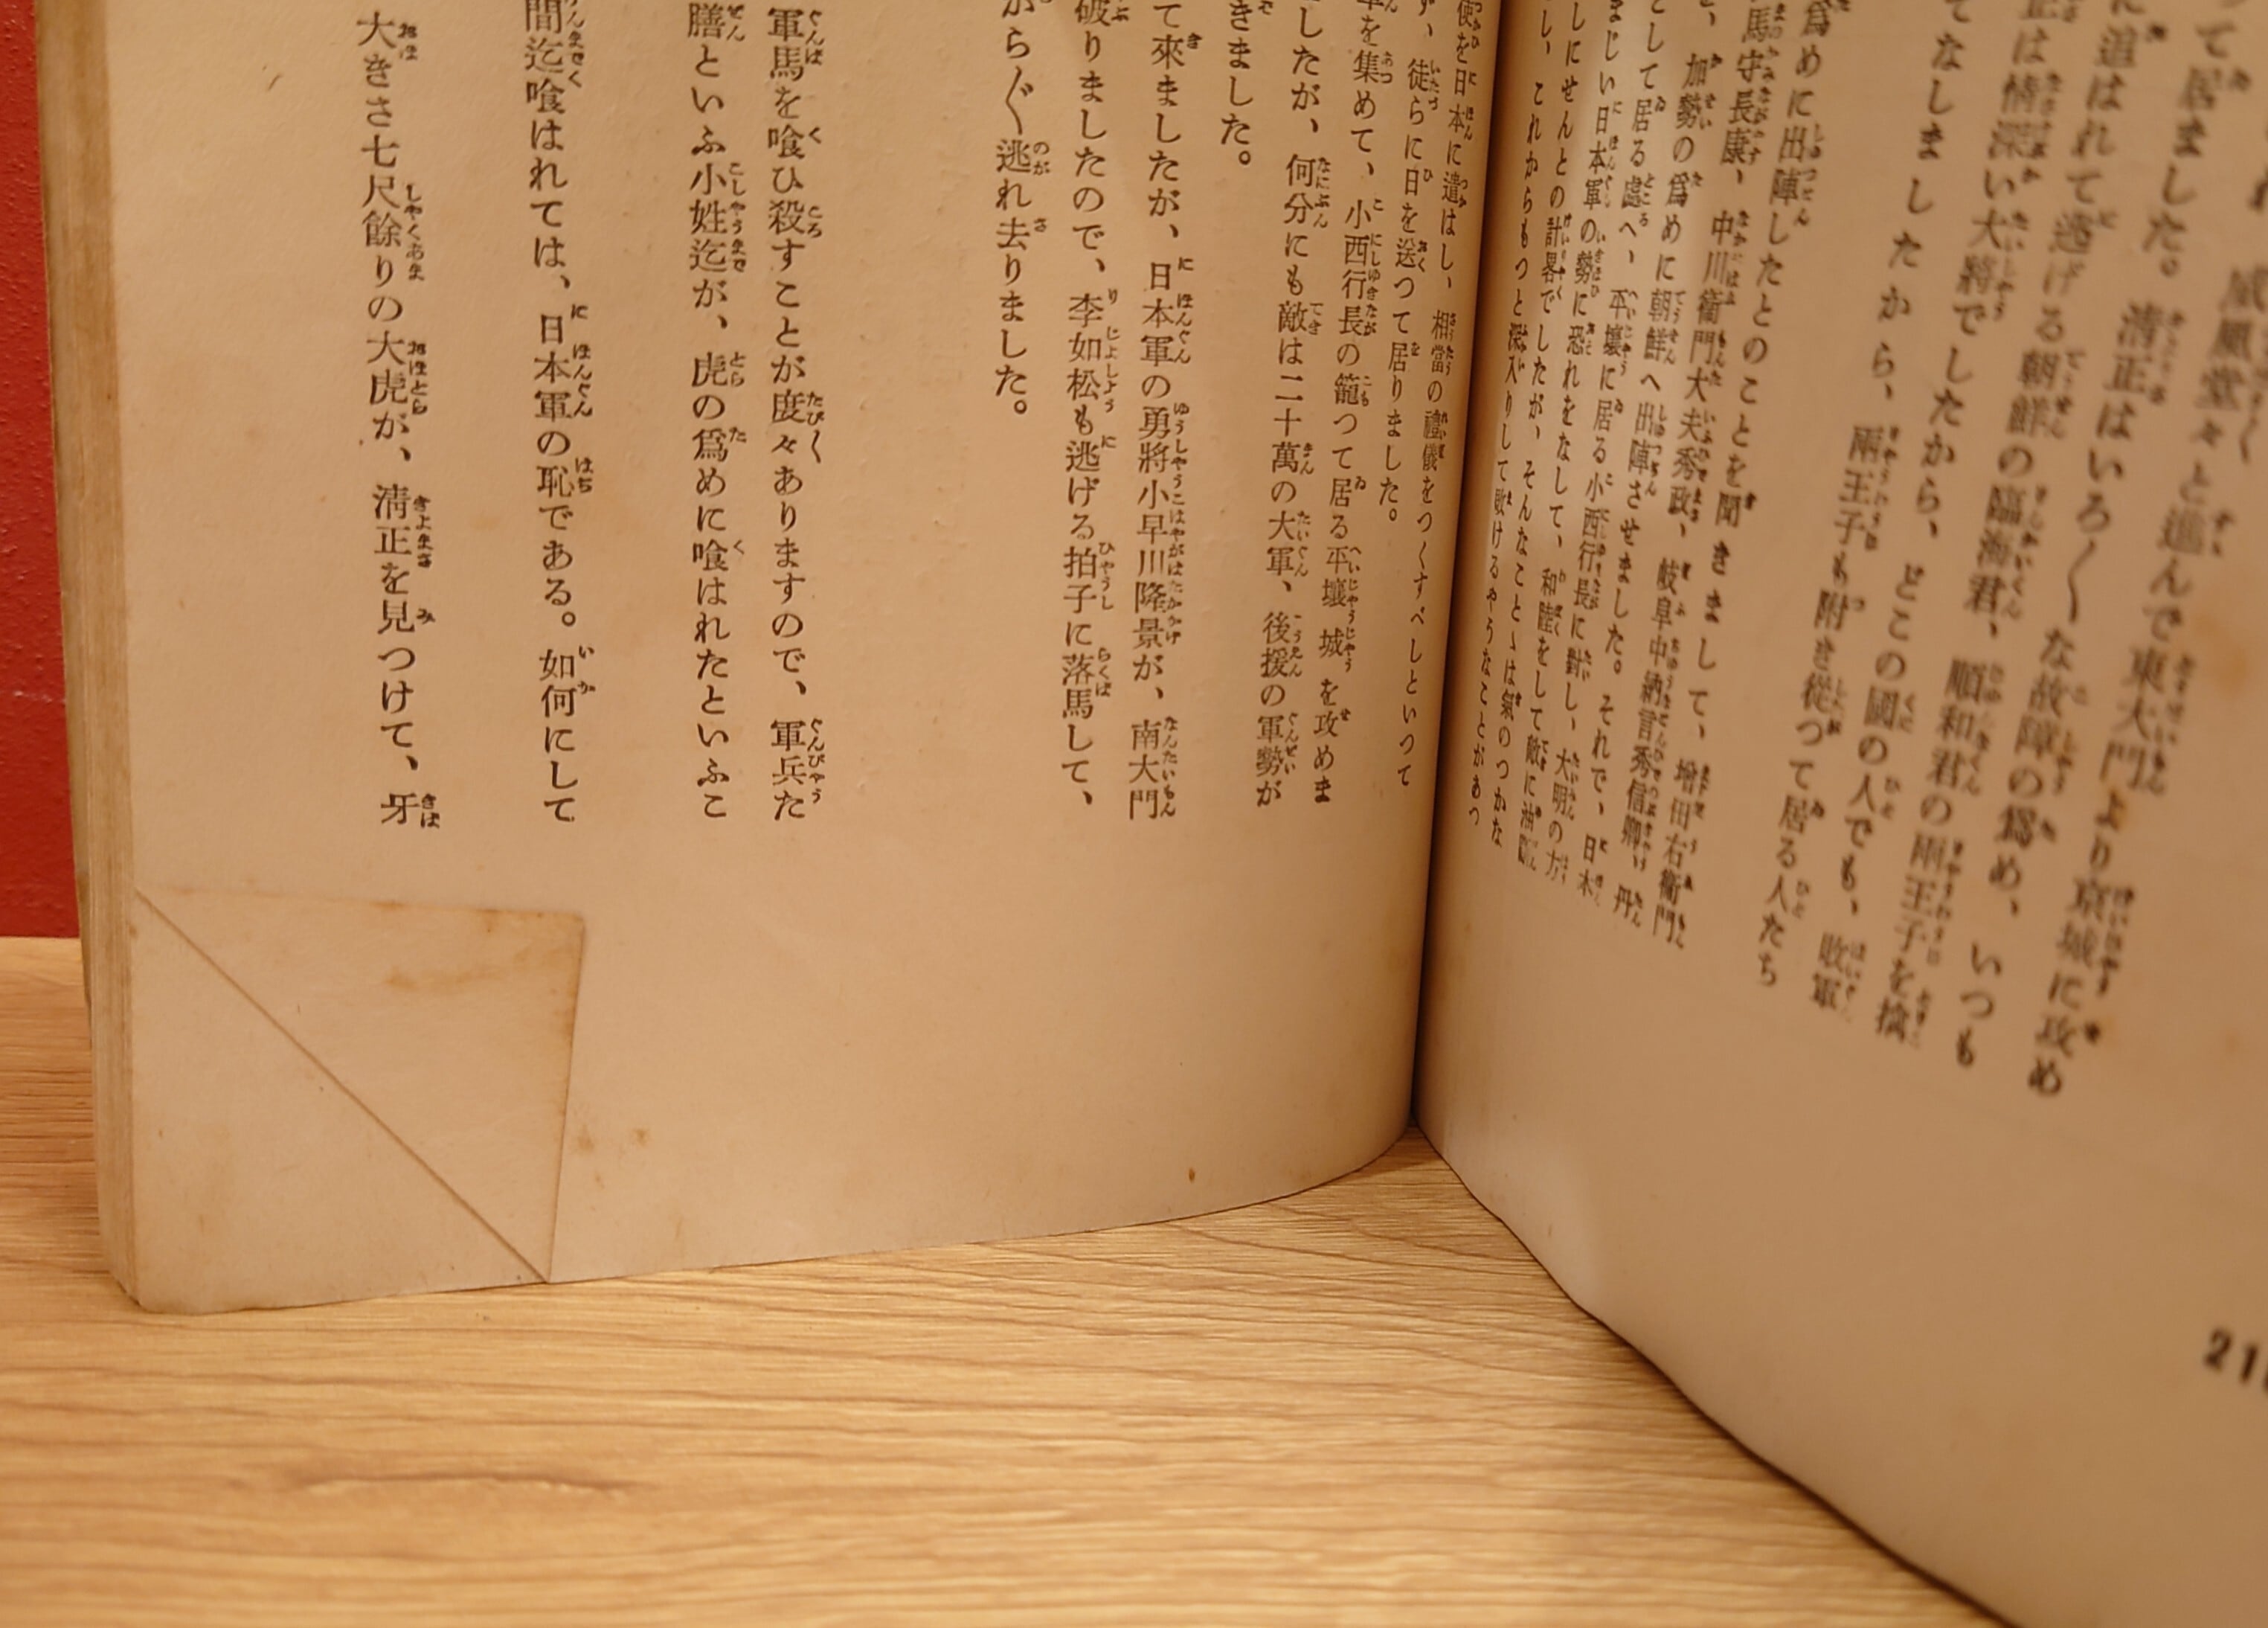 て居ました。清正はいろ〱な故障の爲め、いつも
威風堂々と進んで東大門より京城に攻め
に追はれて逃げる朝鮮の臨海君、順和君の兩王子を擒
正は情深い大將でしたから、どこの國の人でも、敗軍
てなしましたから、兩王子も附き從つて居る人たち
爲めに出陣したとのことを聞きまして、增田右衛門
馬守長康、中川衛門大夫秀政、岐阜中納言秀信卿、丹
加勢の爲めに朝鮮へ出陣させました。それで、日本
として居る處へ、平壤に居る小西行長に對し、大明の方
まじい日本軍の勢に恐れをなして、和睦をして敵に油斷
しにせんとの計畧でしたが、そんなことゝは氣のつかな
し、これからもつと深入りして敗けるやうなことがあつ
使を日本に遣はし、相當の禮儀をつくすべしといつて
ず、徒らに日を送つて居りました。
軍を集めて、小西行長の籠つて居る平壤城を攻めま
したが、何分にも敵は二十萬の大軍、後援の軍勢が
きました。
て來ましたが、日本軍の勇將小早川隆景が、南大門
破りましたので、李如松も逃げる拍子に落馬して、
からぐ〱逃れ去りました。
軍馬を喰ひ殺すことが度々ありますので、軍兵た
膳といふ小姓迄が、虎の爲めに喰はれたといふこ
間迄喰はれては、日本軍の恥である。如何にして
大きさ七尺餘りの大虎が、淸正を見つけて、牙